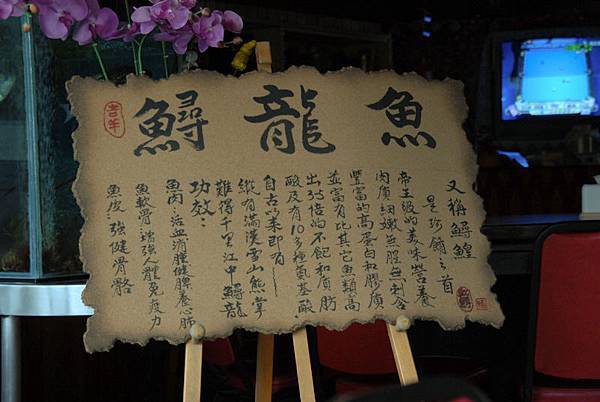 鱘龍魚
吉羊
又稱鱘鰉
是珍餚之首
帝王級的美味營養
肉質細嫩無腥無刺含
豐富的高蛋白和膠質
並富有比其它魚類高
出3.5倍的不飽和質肪
酸及有10多種氨基酸.
自古以來即有
縱有滿漢雪山熊掌
難得千里江中鱘龍
功效:
魚肉:活血消腫健脾養心肺
魚軟骨:增強人體免疫力
魚皮:強健骨骼